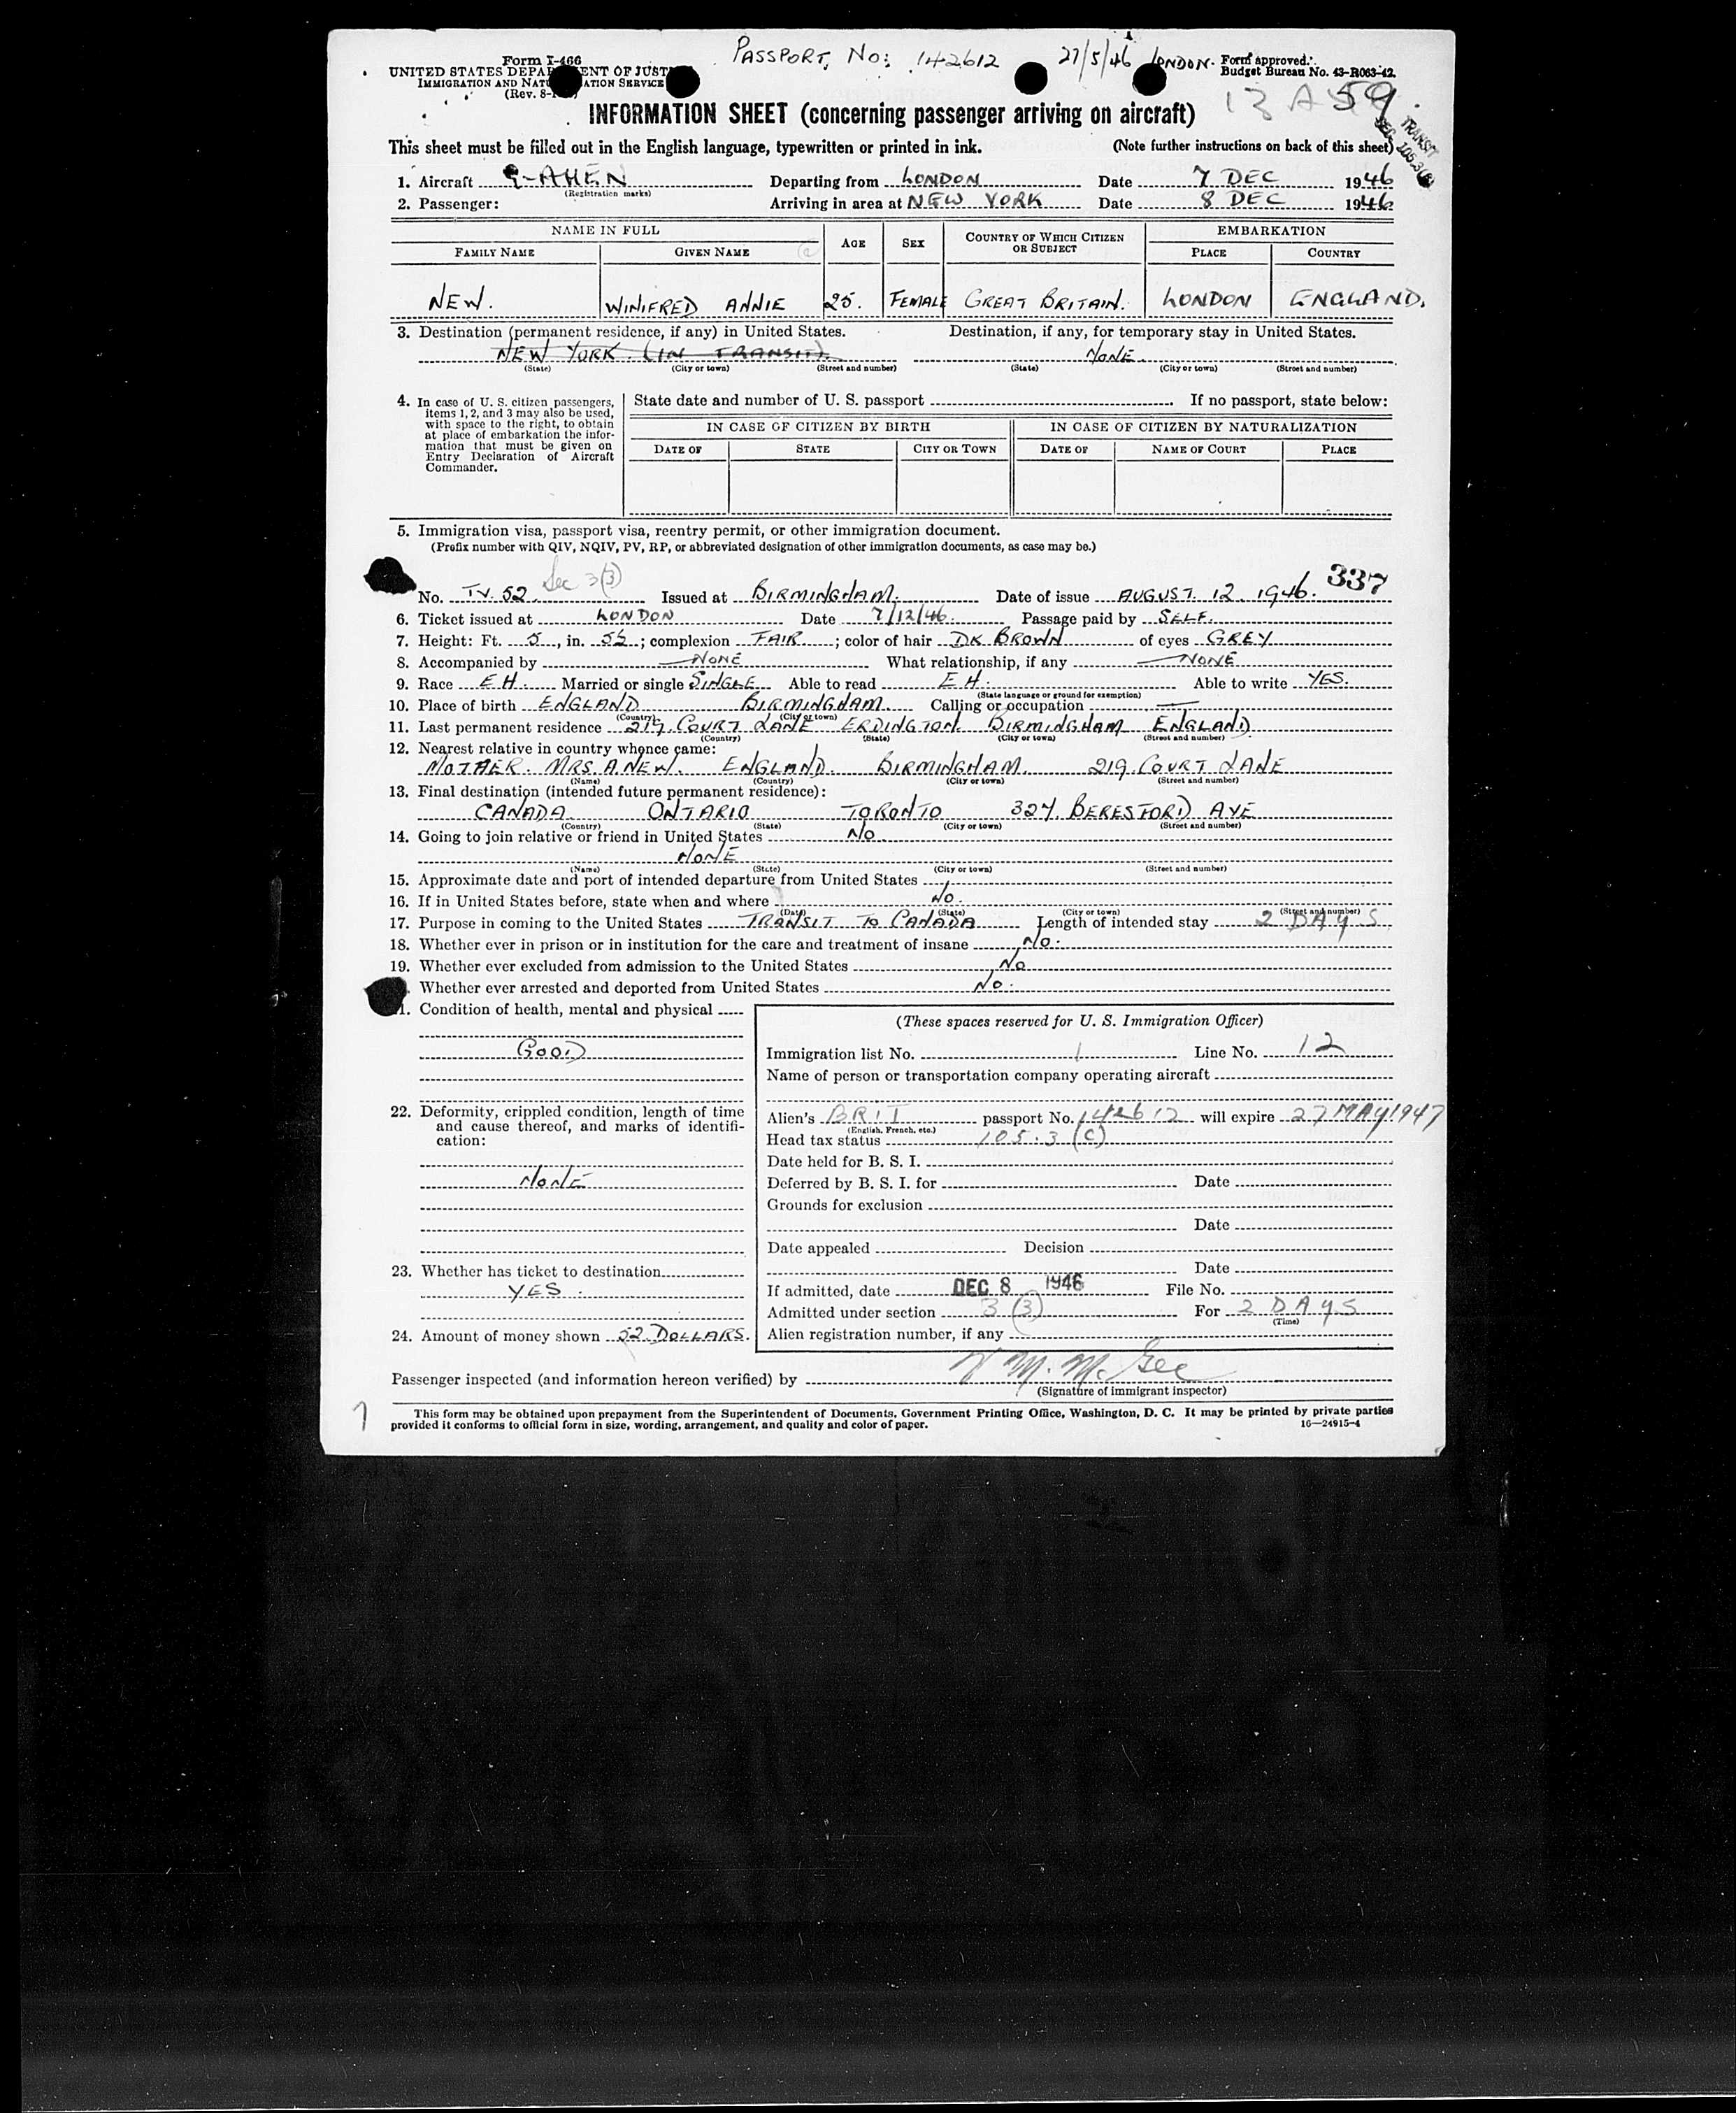 PASSPORT, No: 142612 27/5/46 LONDON.
Form I-466
UNITED STATES DEPA ENT OF JUST
IMMIGRATION AND NATU ATION SERVICE
(Rev. 8-
Form approved.
Budget Bureau No. 43-R063-42.
59
TRANSIT
INFORMATION SHEET (concerning passenger arriving on aircraft)
This sheet must be filled out in the English language, typewritten or printed in ink. (Note further instructions on back of this sheet)
1. Aircraft G-AHEN Departing from LONDON Date 7 DEC 1946
(Registration marks)
2. Passenger: Arriving in area at NEW YORK Date 8 DEC 1946
NAME IN FULL AGE SEX COUNTRY OF WHICH CITIZEN OR SUBJECT EMBARKATION
FAMILY NAME GIVEN NAME PLACE COUNTRY
NEW. WINIFRED ANNIE 25. FEMALE GREAT BRITAIN. LONDON ENGLAND.
3. Destination (permanent residence, if any) in United States. Destination, if any, for temporary stay in United States.
NEW YORK. (IN TRANSIT). NONE.
(State) (City or town) (Street and number) (State) (City or town) (Street and number)
4. In case of U. S. citizen passengers,
items 1, 2, and 3 may also be used,
with space to the right, to obtain
at place of embarkation the infor-
mation that must be given on
Entry Declaration of Aircraft
Commander.
State date and number of U. S. passport If no passport, state below:
IN CASE OF CITIZEN BY BIRTH IN CASE OF CITIZEN BY NATURALIZATION
DATE OF STATE CITY OR TOWN DATE OF NAME OF COURT PLACE
5. Immigration visa, passport visa, reentry permit, or other immigration document.
(Prefix number with QIV, NQIV, PV, RP, or abbreviated designation of other immigration documents, as case may be.)
Sec 3(3) 337
No. TV. 52. Issued at BIRMINGHAM. Date of issue AUGUST. 12. 1946.
6. Ticket issued at LONDON Date 7/12/46. Passage paid by SELF.
7. Height: Ft. 5, in. 5½; complexion FAIR; color of hair DK BROWN of eyes GREY
8. Accompanied by NONE What relationship, if any NONE
9. Race EH. Married or single SINGLE Able to read EH. Able to write YES.
(State language or ground for exemption)
10. Place of birth ENGLAND BIRMINGHAM. Calling or occupation —
(Country) (City or town)
11. Last permanent residence 219. COURT LANE ERDINGTON. BIRMINGHAM ENGLAND.
(Country) (State) (City or town) (Street and number)
12. Nearest relative in country whence came:
MOTHER. MRS. A NEW. ENGLAND. BIRMINGHAM. 219. COURT LANE
(Name) (Country) (City or town) (Street and number)
13. Final destination (intended future permanent residence):
CANADA. ONTARIO TORONTO 327, BERESFORD AVE
(Country) (State) (City or town) (Street and number)
14. Going to join relative or friend in United States No.
NONE
(Name) (State) (City or town) (Street and number)
15. Approximate date and port of intended departure from United States
16. If in United States before, state when and where No.
(Date) (State) (City or town) (Street and number)
17. Purpose in coming to the United States TRANSIT TO CANADA Length of intended stay 2 DAYS
18. Whether ever in prison or in institution for the care and treatment of insane No.
19. Whether ever excluded from admission to the United States No
Whether ever arrested and deported from United States No.
1. Condition of health, mental and physical
GOOD
22. Deformity, crippled condition, length of time
and cause thereof, and marks of identifi-
cation:
NONE
23. Whether has ticket to destination
YES.
24. Amount of money shown 52 DOLLARS.
(These spaces reserved for U. S. Immigration Officer)
Immigration list No. 1 Line No. 12
Name of person or transportation company operating aircraft
Alien's BRIT passport No. 142612 will expire 27 MAY 1947
(English, French, etc.)
Head tax status 105.3 (C)
Date held for B. S. I.
Deferred by B. S. I. for Date
Grounds for exclusion
Date
Date appealed Decision
Date
If admitted, date DEC 8 1946 File No.
Admitted under section 3 (3) For 2 DAYS
(Time)
Alien registration number, if any
Passenger inspected (and information hereon verified) by M. McGee
(Signature of immigrant inspector)
This form may be obtained upon prepayment from the Superintendent of Documents, Government Printing Office, Washington, D. C. It may be printed by private parties
provided it conforms to official form in size, wording, arrangement, and quality and color of paper. 16—24915-4